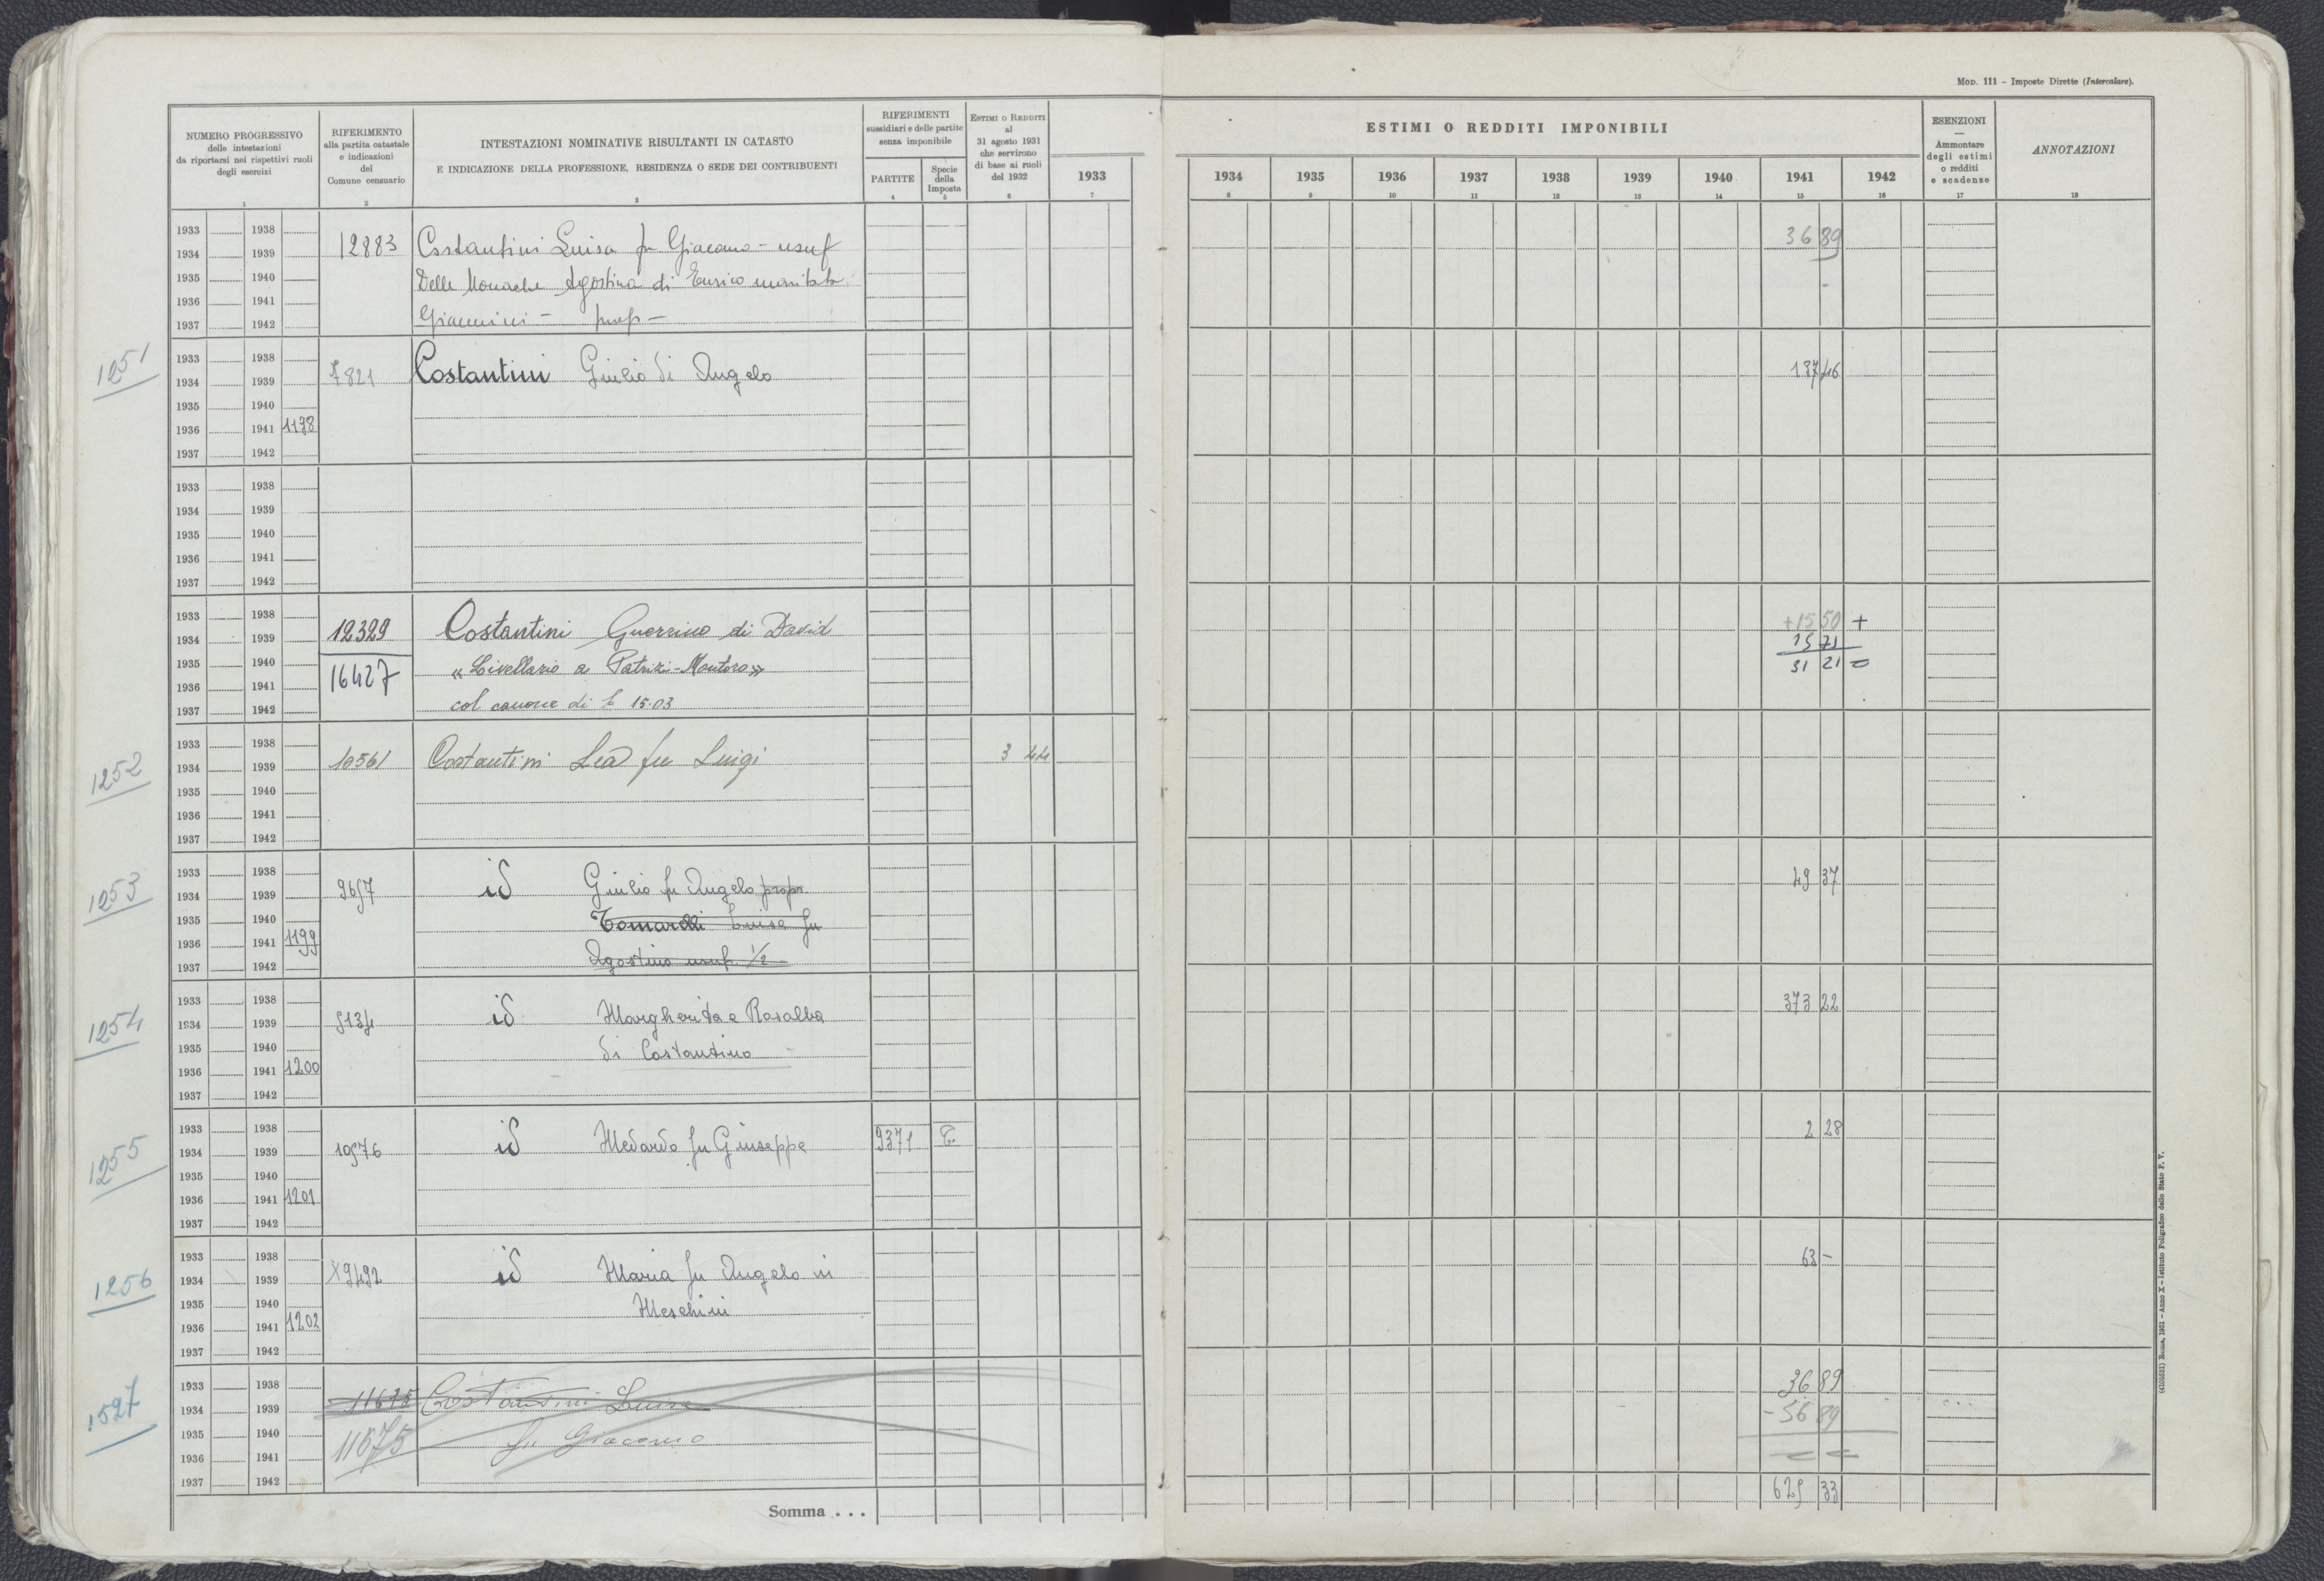 Mod. 111 – Imposte Dirette (Intercalare).
NUMERO PROGRESSIVO
delle intestazioni
da riportarsi nei rispettivi ruoli
degli esercizi
1
RIFERIMENTO
alla partita catastale
e indicazioni
del
Comune censuario
2
INTESTAZIONI NOMINATIVE RISULTANTI IN CATASTO
E INDICAZIONE DELLA PROFESSIONE, RESIDENZA O SEDE DEI CONTRIBUENTI
3
RIFERIMENTI
sussidiari e delle partite
senza imponibile
PARTITE
4
Specie
della
Imposta
5
Estimi o Redditi
al
31 agosto 1931
che servirono
di base ai ruoli
del 1932
6
1933
7
ESTIMI O REDDITI IMPONIBILI
1934 1935 1936 1937 1938 1939 1940 1941 1942
8 9 10 11 12 13 14 15 16
ESENZIONI
—
Ammontare
degli estimi
o redditi
e scadenze
17
ANNOTAZIONI
18
1933 1938
1934 1939 12883 Costantini Luisa fu Giacomo - usuf 36 89
1935 1940 Delle Monache Agostina di Enrico maritata
1936 1941
1937 1942 Giannini - prop -
1251
1933 1938
1934 1939 7821 Costantini Giulio di Angelo 137 46
1935 1940
1936 1941 1198
1937 1942
1933 1938
1934 1939
1935 1940
1936 1941
1937 1942
1933 1938 +15 50 +
1934 1939 12329 Costantini Guerrino di David 15 71
1935 1940 «Livellario a Patrizi-Montoro» 31 21 =
1936 1941 16427
1937 1942 col canone di £ 15.03
1252
1933 1938
1934 1939 10561 Costantini Lea fu Luigi 3 44
1935 1940
1936 1941
1937 1942
1253
1933 1938
1934 1939 9657 id Giulio fu Angelo propr. 49 37
1935 1940 Tomarelli Luisa fu
1936 1941 1199
1937 1942 Agostino usuf. 1/2
1254
1933 1938
1934 1939 9134 id Margherita e Rosalba 373 22
1935 1940 di Costantino
1936 1941 1200
1937 1942
1255
1933 1938
1934 1939 10976 id Medardo fu Giuseppe 9371 2 28
1935 1940
1936 1941 1201
1937 1942
1256
1933 1938
1934 1939 X9492 id Maria fu Angelo in 63 –
1935 1940 Meschini
1936 1941 1202
1937 1942
1527
1933 1938 36 89
1934 1939 11675 Costantini Luisa - 36 89
1935 1940 11675 fu Giacomo
1936 1941
1937 1942
Somma . . . 625 33
(4105031) Roma, 1931 – Anno X – Istituto Poligrafico dello Stato P. V.